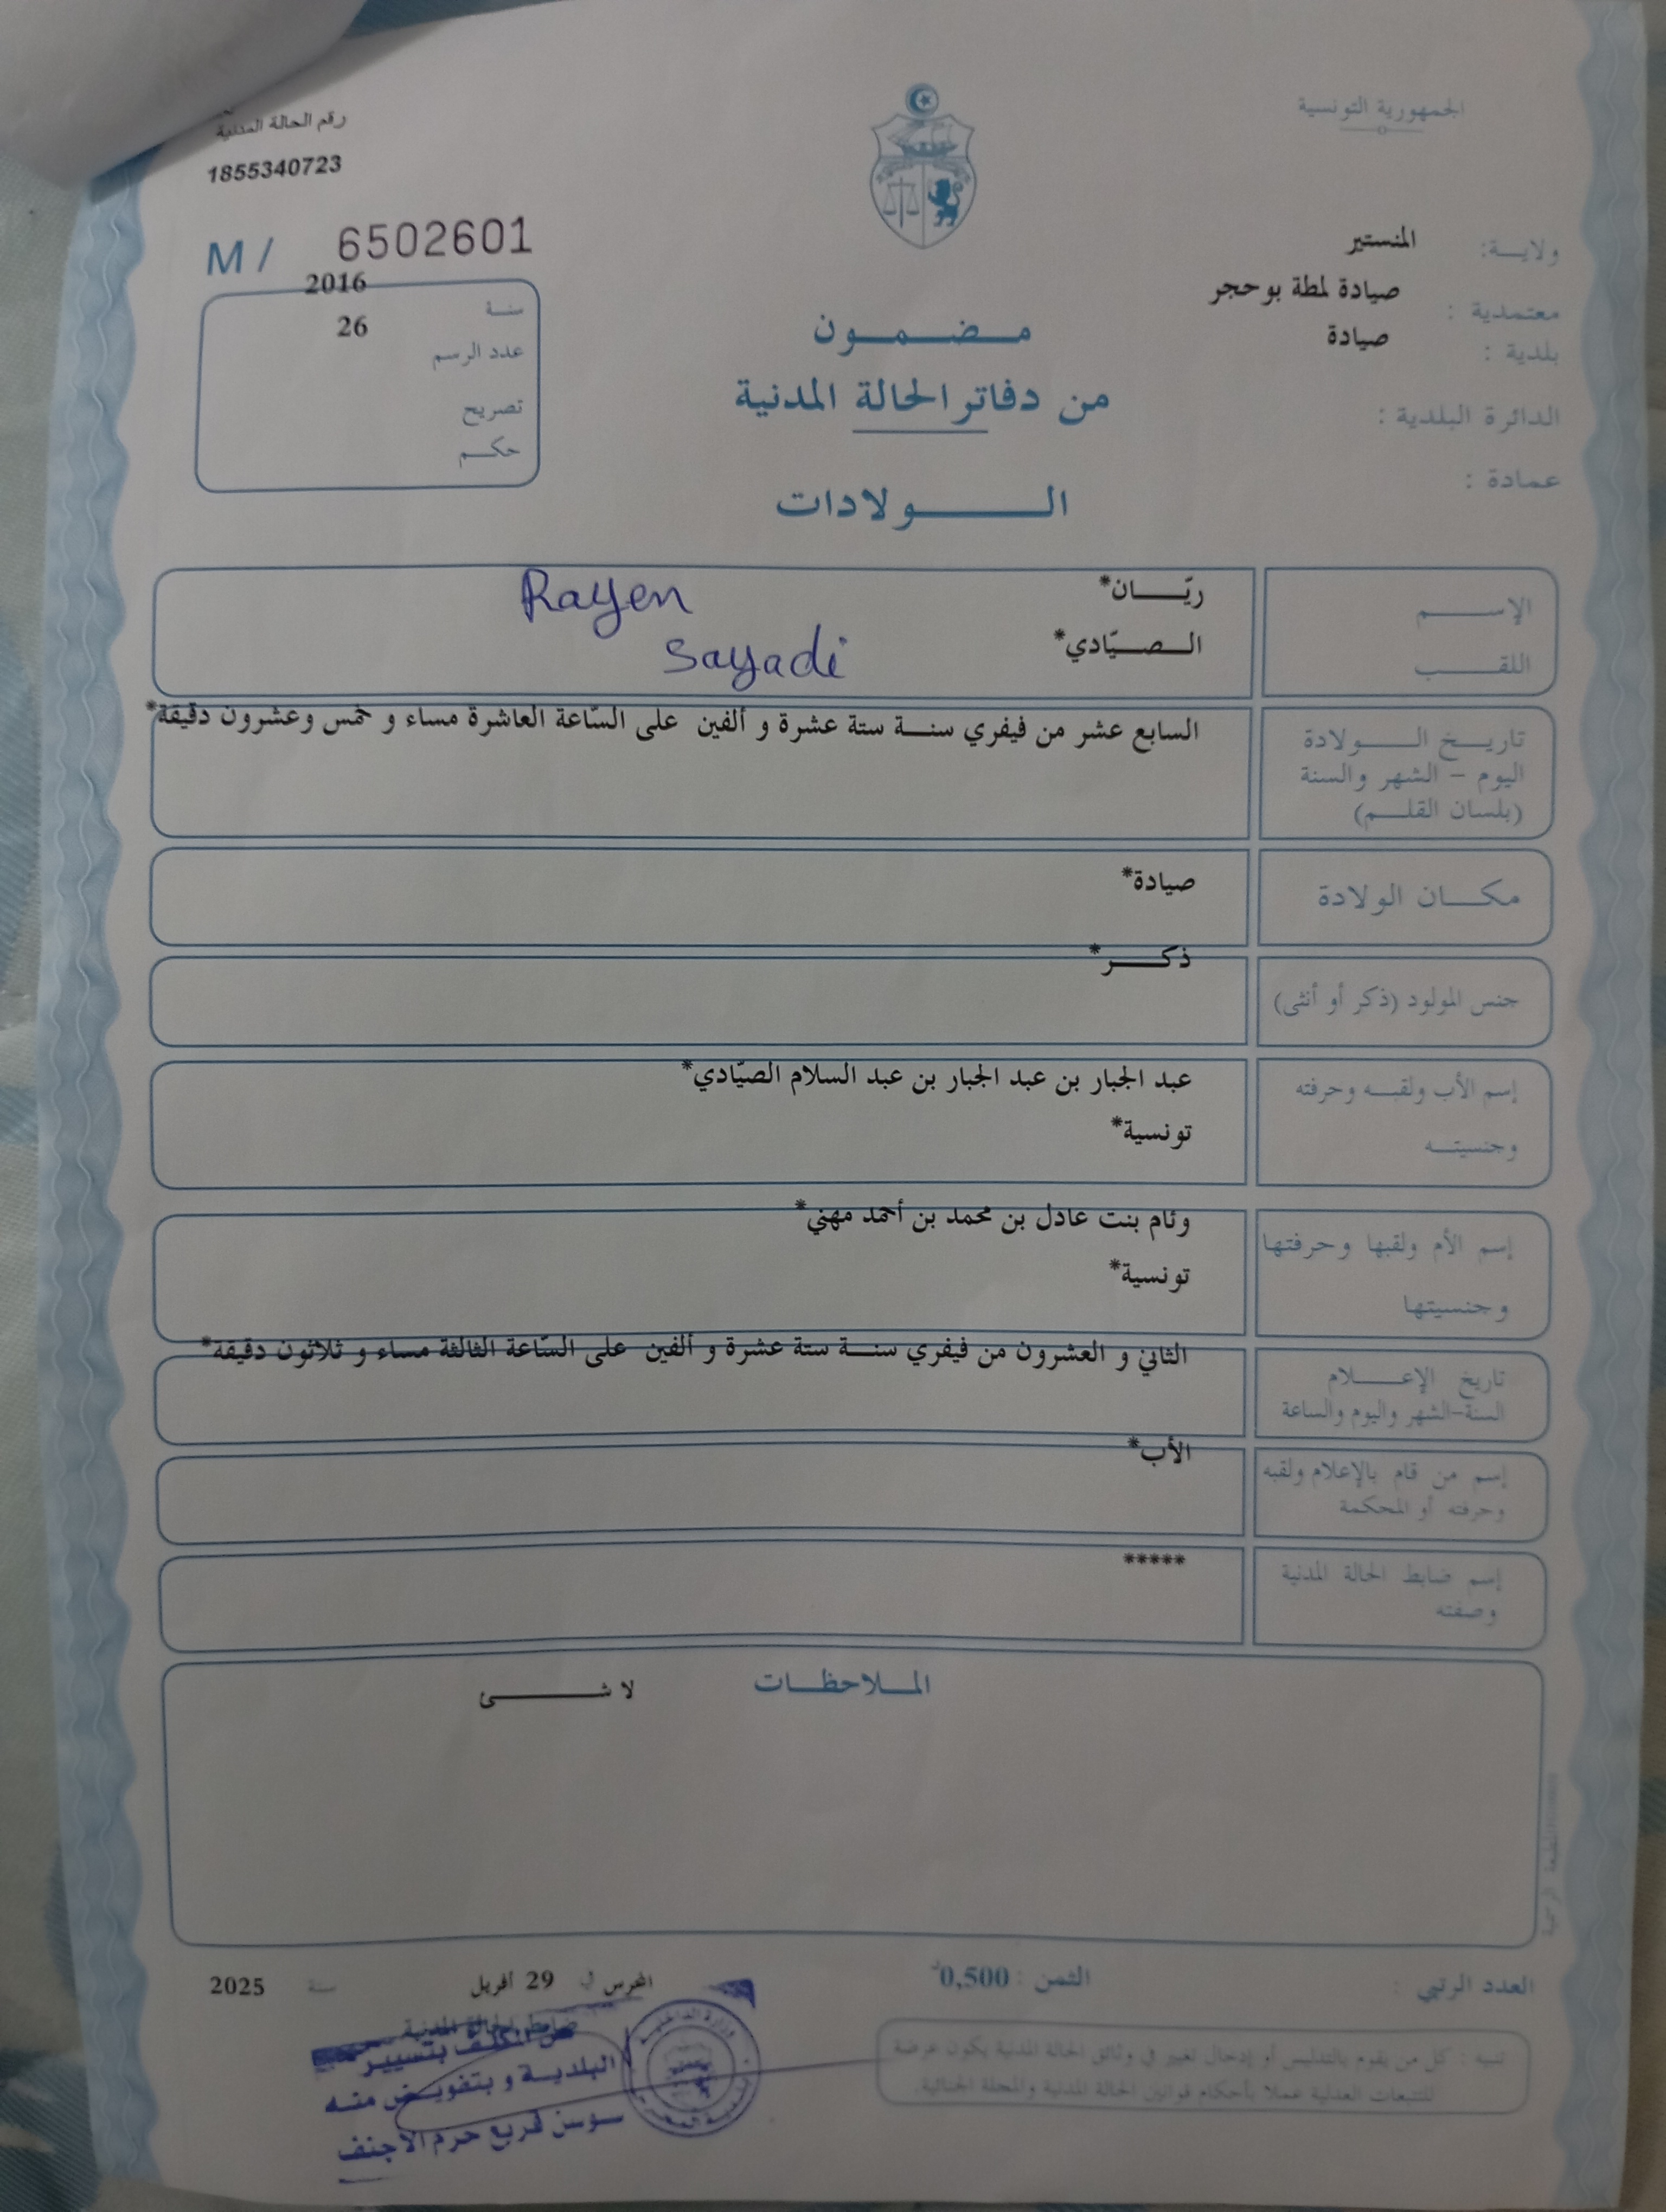 الجمهورية التونسية
رقم الحالة المدنية
1855340723
M / 6502601
ولايـــة: المنستير
معتمدية : صيادة لمطة بوحجر
بلدية : صيادة
الدائرة البلدية :
عمادة :
سنـــة 2016
عدد الرسم 26
تصريح
حكـــم
مـــضـــمـــون
من دفاتر الحالة المدنية
الـــولادات
الإســـم ريّـــان*
Rayen
اللقـــب الـــصـــيّادي*
Sayadi
تاريـــخ الـــولادة
اليوم – الشهر والسنة
(بلسان القلـــم)
السابع عشر من فيفري سنـــة ستة عشرة و ألفين على السّاعة العاشرة مساء و خمس وعشرون دقيقة*
مكـــان الولادة صيادة*
جنس المولود (ذكر أو أنثى) ذكـــر*
إسم الأب ولقبـــه وحرفته
وجنسيتـــه
عبد الجبار بن عبد الجبار بن عبد السلام الصيّادي*
تونسية*
إسم الأم ولقبها وحرفتها
وجنسيتها
وئام بنت عادل بن محمد بن أحمد مهني*
تونسية*
تاريخ الإعـــلام
السنة-الشهر واليوم والساعة
الثاني و العشرون من فيفري سنـــة ستة عشرة و ألفين على السّاعة الثالثة مساء و ثلاثون دقيقة*
إسم من قام بالإعلام ولقبه
وحرفته أو المحكمة
الأب*
إسم ضابط الحالة المدنية
وصفته
*****
المـــلاحظـــات
لا شـــئ
العدد الرتبي :
الثمن : 0,500د
المحرس في 29 أفريل سنة 2025
ضابط الحالة المدنية
عن المكلف بتسيير
البلدية و بتفويض منه
سوسن قريع حرم الأجنف
تنبيه : كل من يقوم بالتدليس أو إدخال تغيير في وثائق الحالة المدنية يكون عرضة
للتتبعات العدلية عملا بأحكام قوانين الحالة المدنية والمجلة الجنائية.